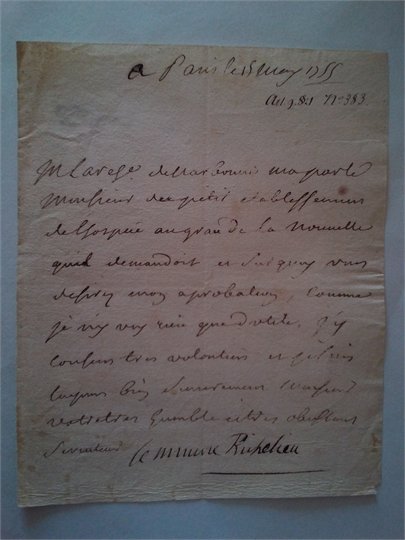 a Paris le 15 may 1755
n° 383
M Larege. de Narbonne ma parle
Monsieur des petit etablissemens
de au grand de la Nouvelle
quil demandoit et surquoy vous
desirez mon aprobation, comme
je ny voy rien que dutile, j'y
consens tres volontiers et je suis
toujours bien Monsieur
votre tres humble et tres obeissant
serviteur Richelieu